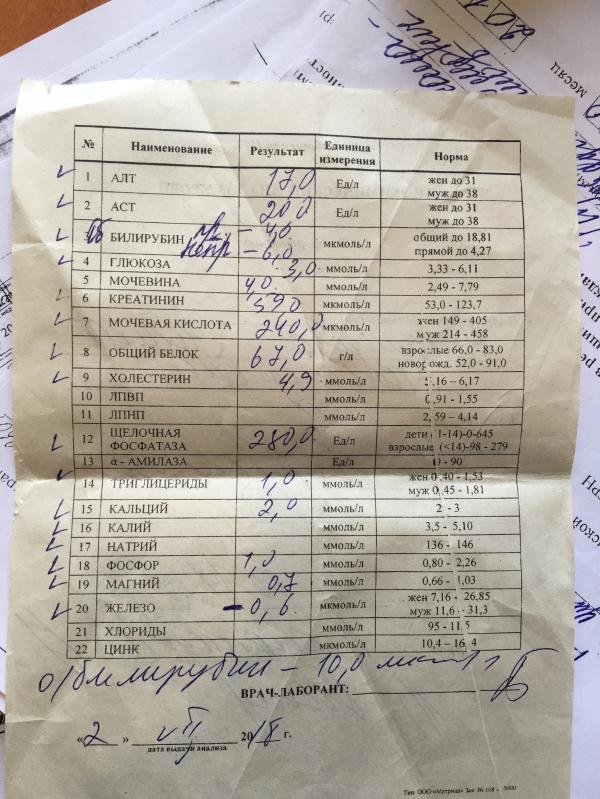 № Наименование Результат Единица измерения Норма
1 АЛТ 17,0 Ед/л жен до 31 муж до 38
2 АСТ 20,0 Ед/л жен до 31 муж до 38
3 БИЛИРУБИН пр – 4,0 непр – 6,0 мкмоль/л общий до 18,81 прямой до 4,27
4 ГЛЮКОЗА 3,0 ммоль/л 3,33 - 6,11
5 МОЧЕВИНА 4,0 ммоль/л 2,49 - 7,79
6 КРЕАТИНИН 59,0 мкмоль/л 53,0 - 123,7
7 МОЧЕВАЯ КИСЛОТА 240,0 мкмоль/л жен 149 - 405 муж 214 - 458
8 ОБЩИЙ БЕЛОК 67,0 г/л взрослые 66,0 - 83,0 новорожд. 52,0 - 91,0
9 ХОЛЕСТЕРИН 4,9 ммоль/л ,16 – 6,17
10 ЛПВП ммоль/л 0,91 - 1,55
11 ЛПНП ммоль/л 2,59 – 4,14
12 ЩЕЛОЧНАЯ ФОСФАТАЗА 280,0 Ед/л дети (1-14)-0-645 взрослые (<14)-98 - 279
13 α - АМИЛАЗА Ед/л 0 - 90
14 ТРИГЛИЦЕРИДЫ 1,0 ммоль/л жен 0,40 - 1,53 муж 0,45 - 1,81
15 КАЛЬЦИЙ 2,0 ммоль/л 2 - 3
16 КАЛИЙ ммоль/л 3,5 - 5,10
17 НАТРИЙ ммоль/л 136 - 146
18 ФОСФОР 1,0 ммоль/л 0,80 - 2,26
19 МАГНИЙ 0,7 ммоль/л 0,66 - 1,03
20 ЖЕЛЕЗО – 0,6 мкмоль/л жен 7,16 - 26,85 муж 11,6 - 31,3
21 ХЛОРИДЫ ммоль/л 95 - 11,5
22 ЦИНК мкмоль/л 10,4 – 16,4
о/билирубин – 10,0
ВРАЧ-ЛАБОРАНТ:
«2» VII 2018 г.
дата выдачи анализа
Тип. ООО «Метрица» Зак. № 168 - 5000